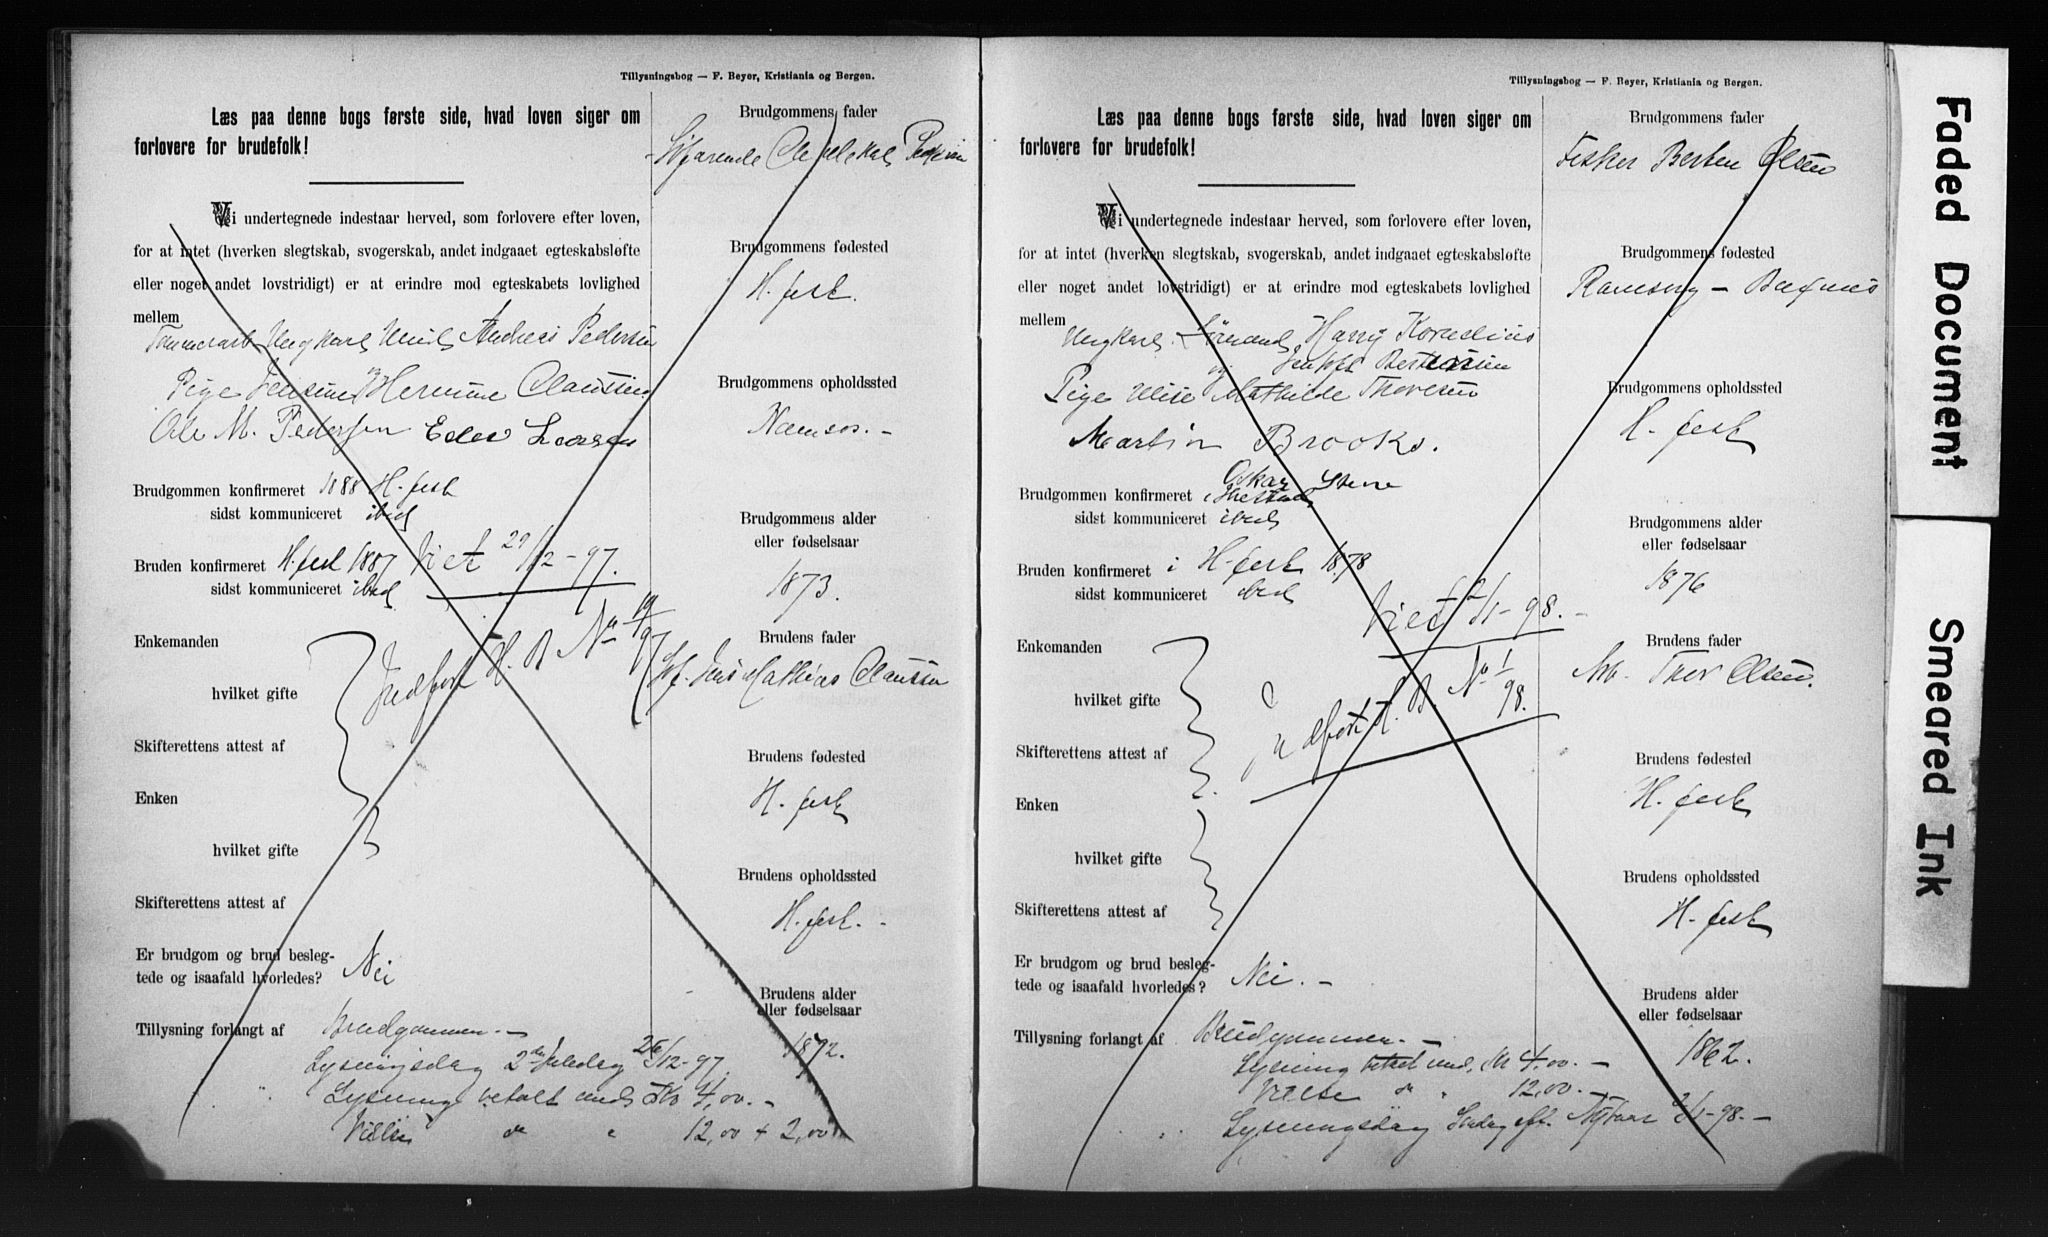 Tillysningsbog — F. Beyer, Kristiania og Bergen.
Læs paa denne bogs første side, hvad loven siger om
forlovere for brudefolk!
Vi undertegnede indestaar herved, som forlovere efter loven,
for at intet (hverken slegtskab, svogerskab, andet indgaaet egteskabsløfte
eller noget andet lovstridigt) er at erindre mod egteskabets lovlighed
mellem
Ungkarl Emil Andreas Pedersen
Pige Hermine Claussen
Ole M. Pedersen Larsen
Brudgommen konfirmeret 1888 H.fest
sidst kommuniceret ibid
Bruden konfirmeret H.fest 1887
sidst kommuniceret ibid
Viet 29/12-97.
Enkemanden
hvilket gifte
Indført H. B No 19/97
Skifterettens attest af
Enken
hvilket gifte
Skifterettens attest af
Er brudgom og brud beslegtede og isaafald hvorledes? Nei
Tillysning forlangt af Brudgommen. -
Lysningsdag 2den Juledag 26/12-97
Lysning betalt med Kr 4,00. -
Vielse do " 12,00 + 2,00
Brudgommens fader
Søfarende Pedersen
Brudgommens fødested
H.fest.
Brudgommens opholdssted
Namsos. -
Brudgommens alder
eller fødselsaar
1873.
Brudens fader
Jens Mathias Claussen
Brudens fødested
H.fest
Brudens opholdssted
H.fest. -
Brudens alder
eller fødselsaar
1872.
Tillysningsbog — F. Beyer, Kristiania og Bergen.
Læs paa denne bogs første side, hvad loven siger om
forlovere for brudefolk!
Vi undertegnede indestaar herved, som forlovere efter loven,
for at intet (hverken slegtskab, svogerskab, andet indgaaet egteskabsløfte
eller noget andet lovstridigt) er at erindre mod egteskabets lovlighed
mellem
Ungkarl Harry Kornelius
og Bertensen
Pige Elise Mathilde Thoresen
Martin Brooks.
Oskar Stene
Brudgommen konfirmeret i
sidst kommuniceret ibid
Bruden konfirmeret i H.fest 1878
sidst kommuniceret ibid
Viet 2/1-98. -
Enkemanden
hvilket gifte
Indført H. B. No 1/98.
Skifterettens attest af
Enken
hvilket gifte
Skifterettens attest af
Er brudgom og brud beslegtede og isaafald hvorledes? Nei. -
Tillysning forlangt af Brudgommen. -
Lysning betalt med Kr 4,00. -
Vielse do " 12,00. -
Lysningsdag Søndag eft. Nytaar 2/1-98. -
Brudgommens fader
Fisker Berten Olsen
Brudgommens fødested
Brudgommens opholdssted
H.fest
Brudgommens alder
eller fødselsaar
1876
Brudens fader
Thor Olsen.
Brudens fødested
H.fest
Brudens opholdssted
H.fest
Brudens alder
eller fødselsaar
1862.
Faded Document
Smeared Ink